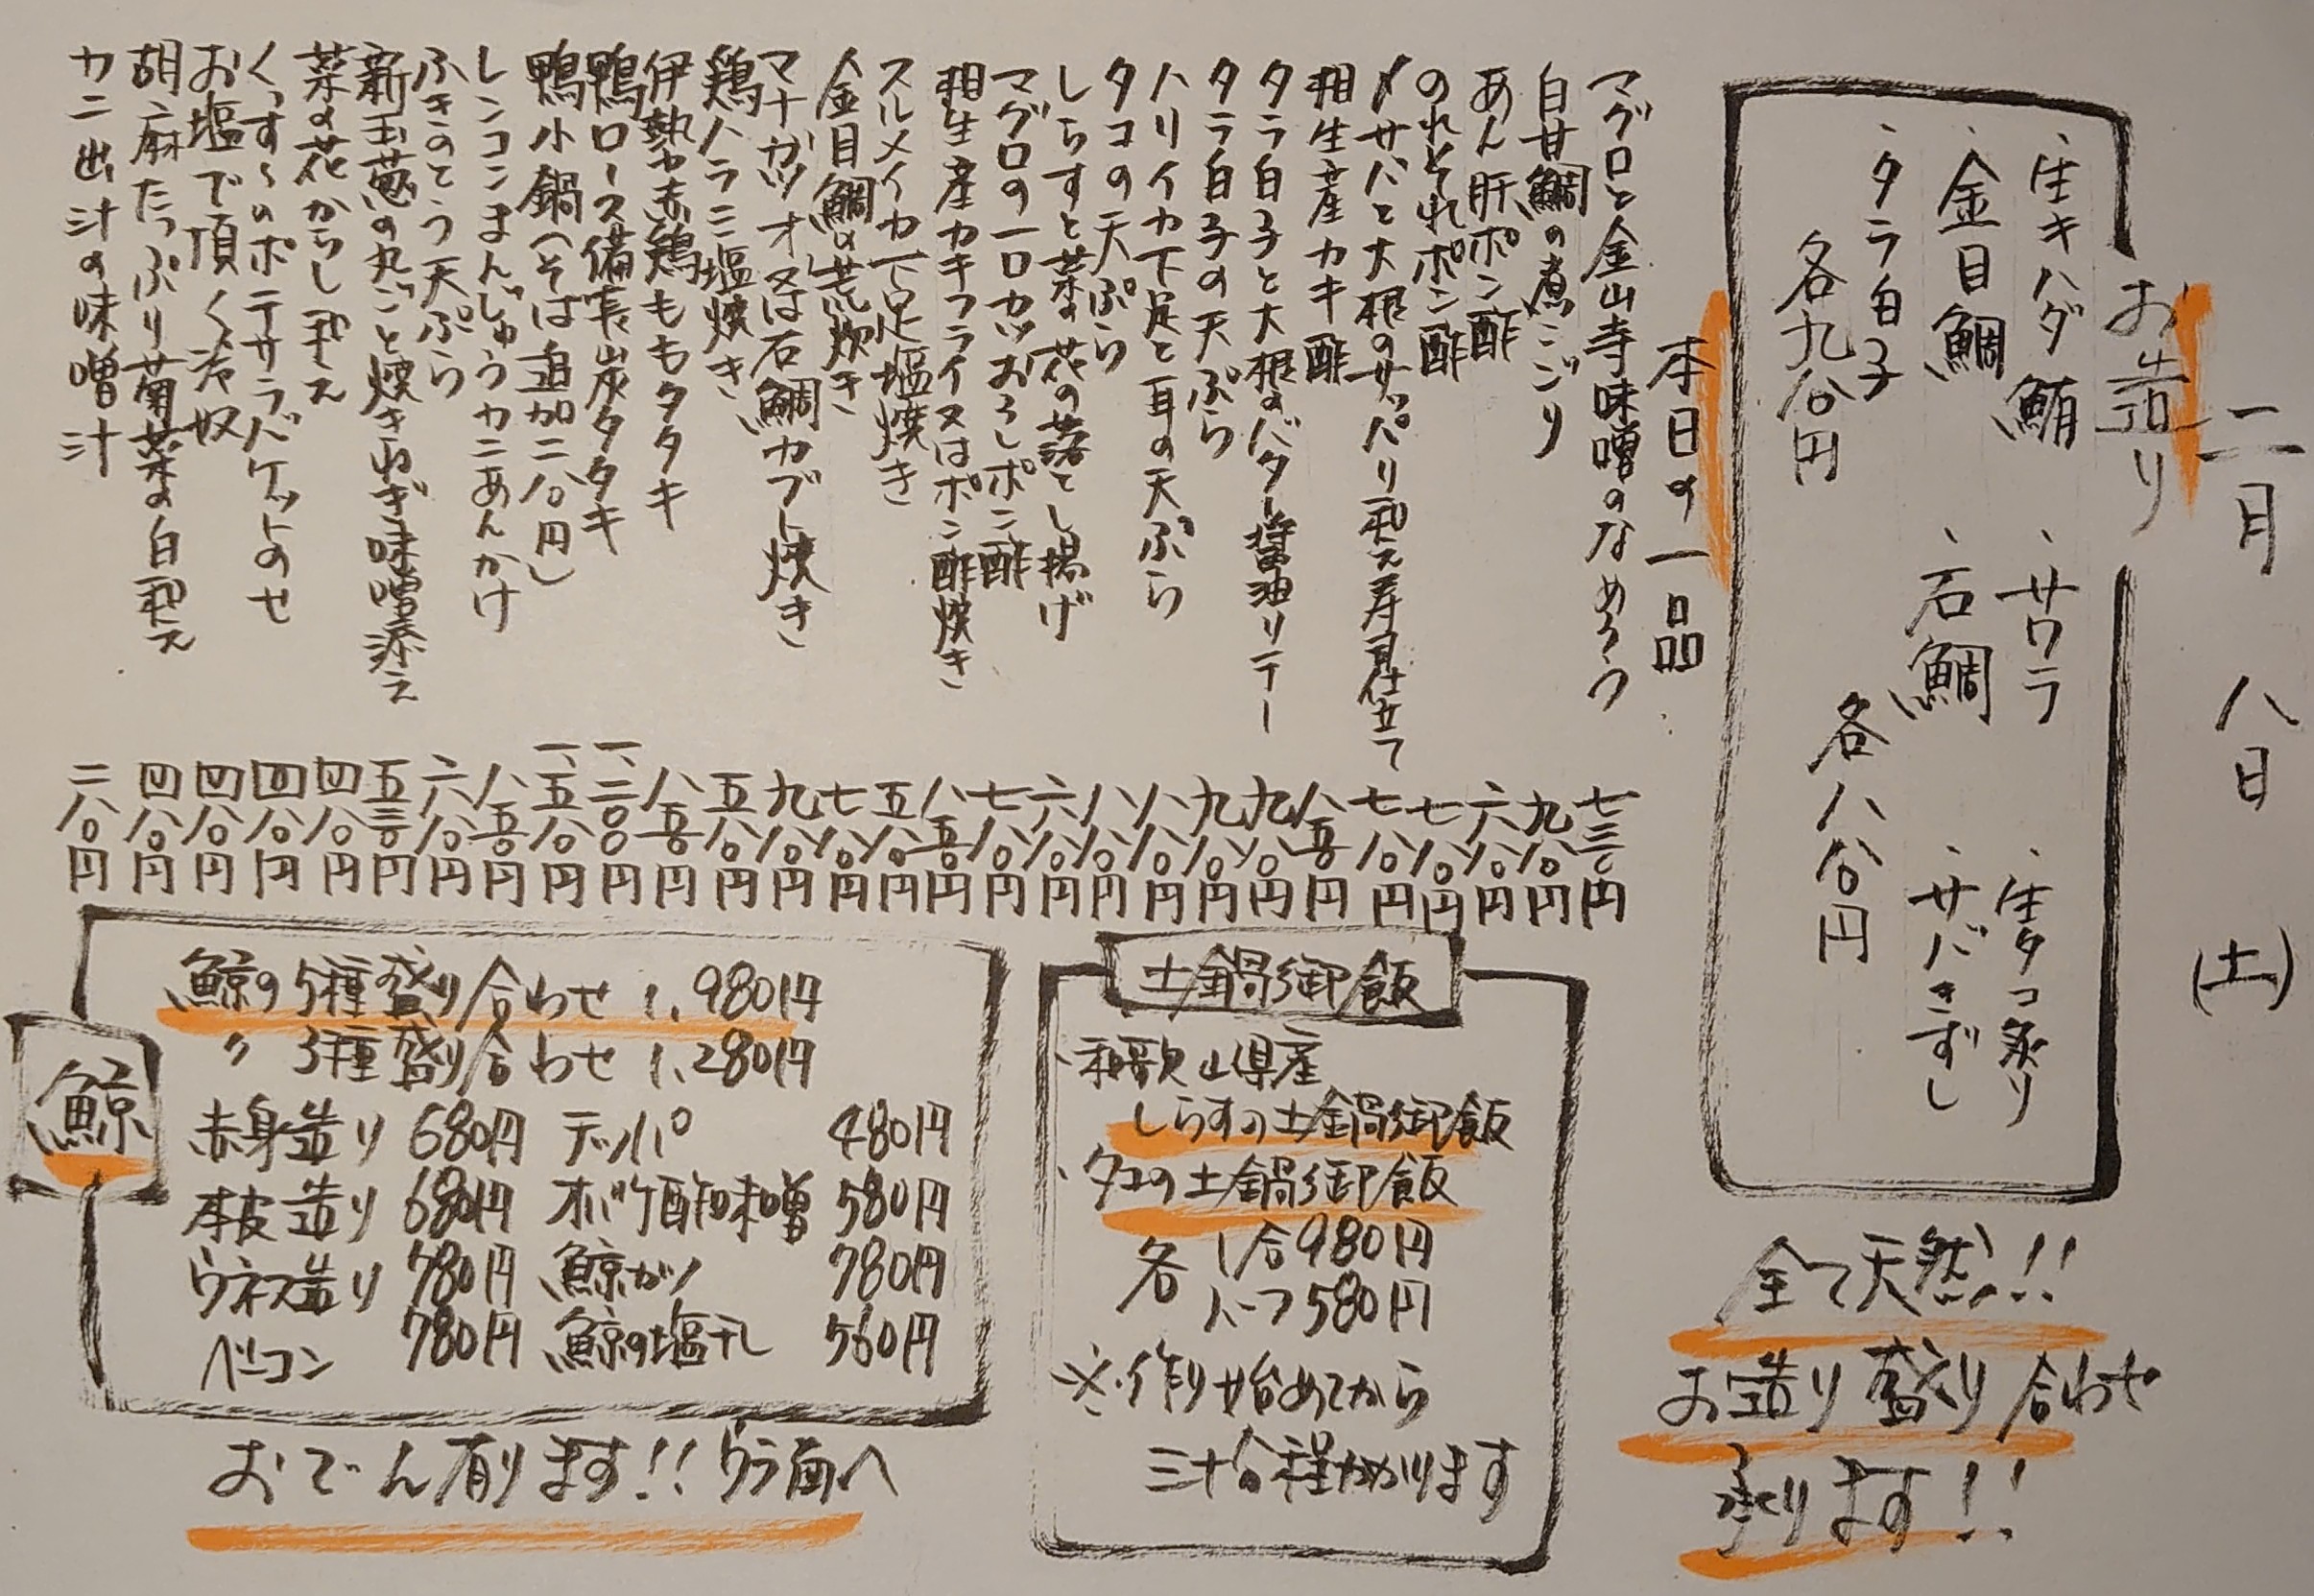 二月八日(土)
お造り
・生キハダ鮪
・サワラ
・生タコ炙り
・金目鯛
・石鯛
・サバきずし
・タラ白子
各九八〇円
各八八〇円
全て天然!!
お造り盛り合わせ
承ります!!
本日の一品
マグロと金山寺味噌のなめろう 七三〇円
白甘鯛の煮こごり 九八〇円
あん肝ポン酢 六八〇円
のれそれポン酢 七八〇円
〆サバと大根のサッパリ和え寿司仕立て 七八〇円
相生産カキ酢 八五〇円
タラ白子と大根のバター醤油ソテー 九八〇円
タラ白子の天ぷら 九八〇円
ハリイカ下足と耳の天ぷら 八八〇円
タコの天ぷら 八八〇円
しらすと菜の花の落とし揚げ 六八〇円
マグロの一口カツおろしポン酢 七八〇円
相生産カキフライ又はポン酢焼き 八五〇円
スルメイカ下足塩焼き 五八〇円
金目鯛の荒炊き 七八〇円
マナガツオ又は石鯛カブト焼き 九八〇円
鶏ハラミ塩焼き 五八〇円
伊勢赤鶏ももタタキ 八五〇円
鴨ロース備長炭タタキ 一、二〇〇円
鴨小鍋(そば追加二八〇円) 一、五八〇円
レンコンまんじゅうカニあんかけ 八五〇円
ふきのとう天ぷら 六八〇円
新玉葱の丸ごと焼きねぎ味噌添え 五三〇円
菜の花からし和え 四八〇円
くっすんのポテサラバケットのせ 四八〇円
お塩で頂く冷奴 四八〇円
胡麻たっぷり菊菜の白和え 四八〇円
カニ出汁の味噌汁 二八〇円
土鍋御飯
・和歌山県産
しらすの土鍋御飯
・タコの土鍋御飯
各 1合980円
ハーフ580円
※作り始めてから
三十分程かかります
鯨
鯨の5種盛り合わせ 1,980円
〃 3種盛り合わせ 1,280円
赤身造り 680円 テッパ 480円
本皮造り 680円 オバケ酢味噌 580円
ウネス造り 780円 鯨カツ 780円
ベーコン 780円 鯨の塩干し 560円
おでん有ります!!ウラ面へ